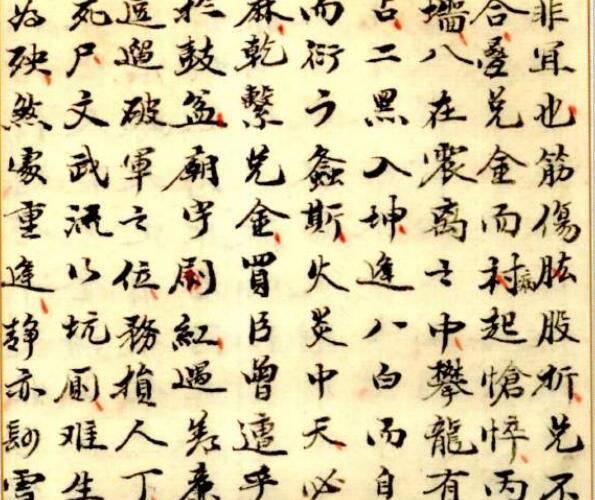 非宜也筋傷肱股折兑不
合疊兑金而村起愴悴丙
墙八在震离之中攀龍有
占二黑入坤逢八白而自
而衍于螽斯火炎中天必
麻乾繫兑金買臣曾遭乎
於鼓盆廟宇刷紅遇廉
破軍之位務損人丁
死尸文武流以坑厠难生
为殃煞處重逢静亦雪